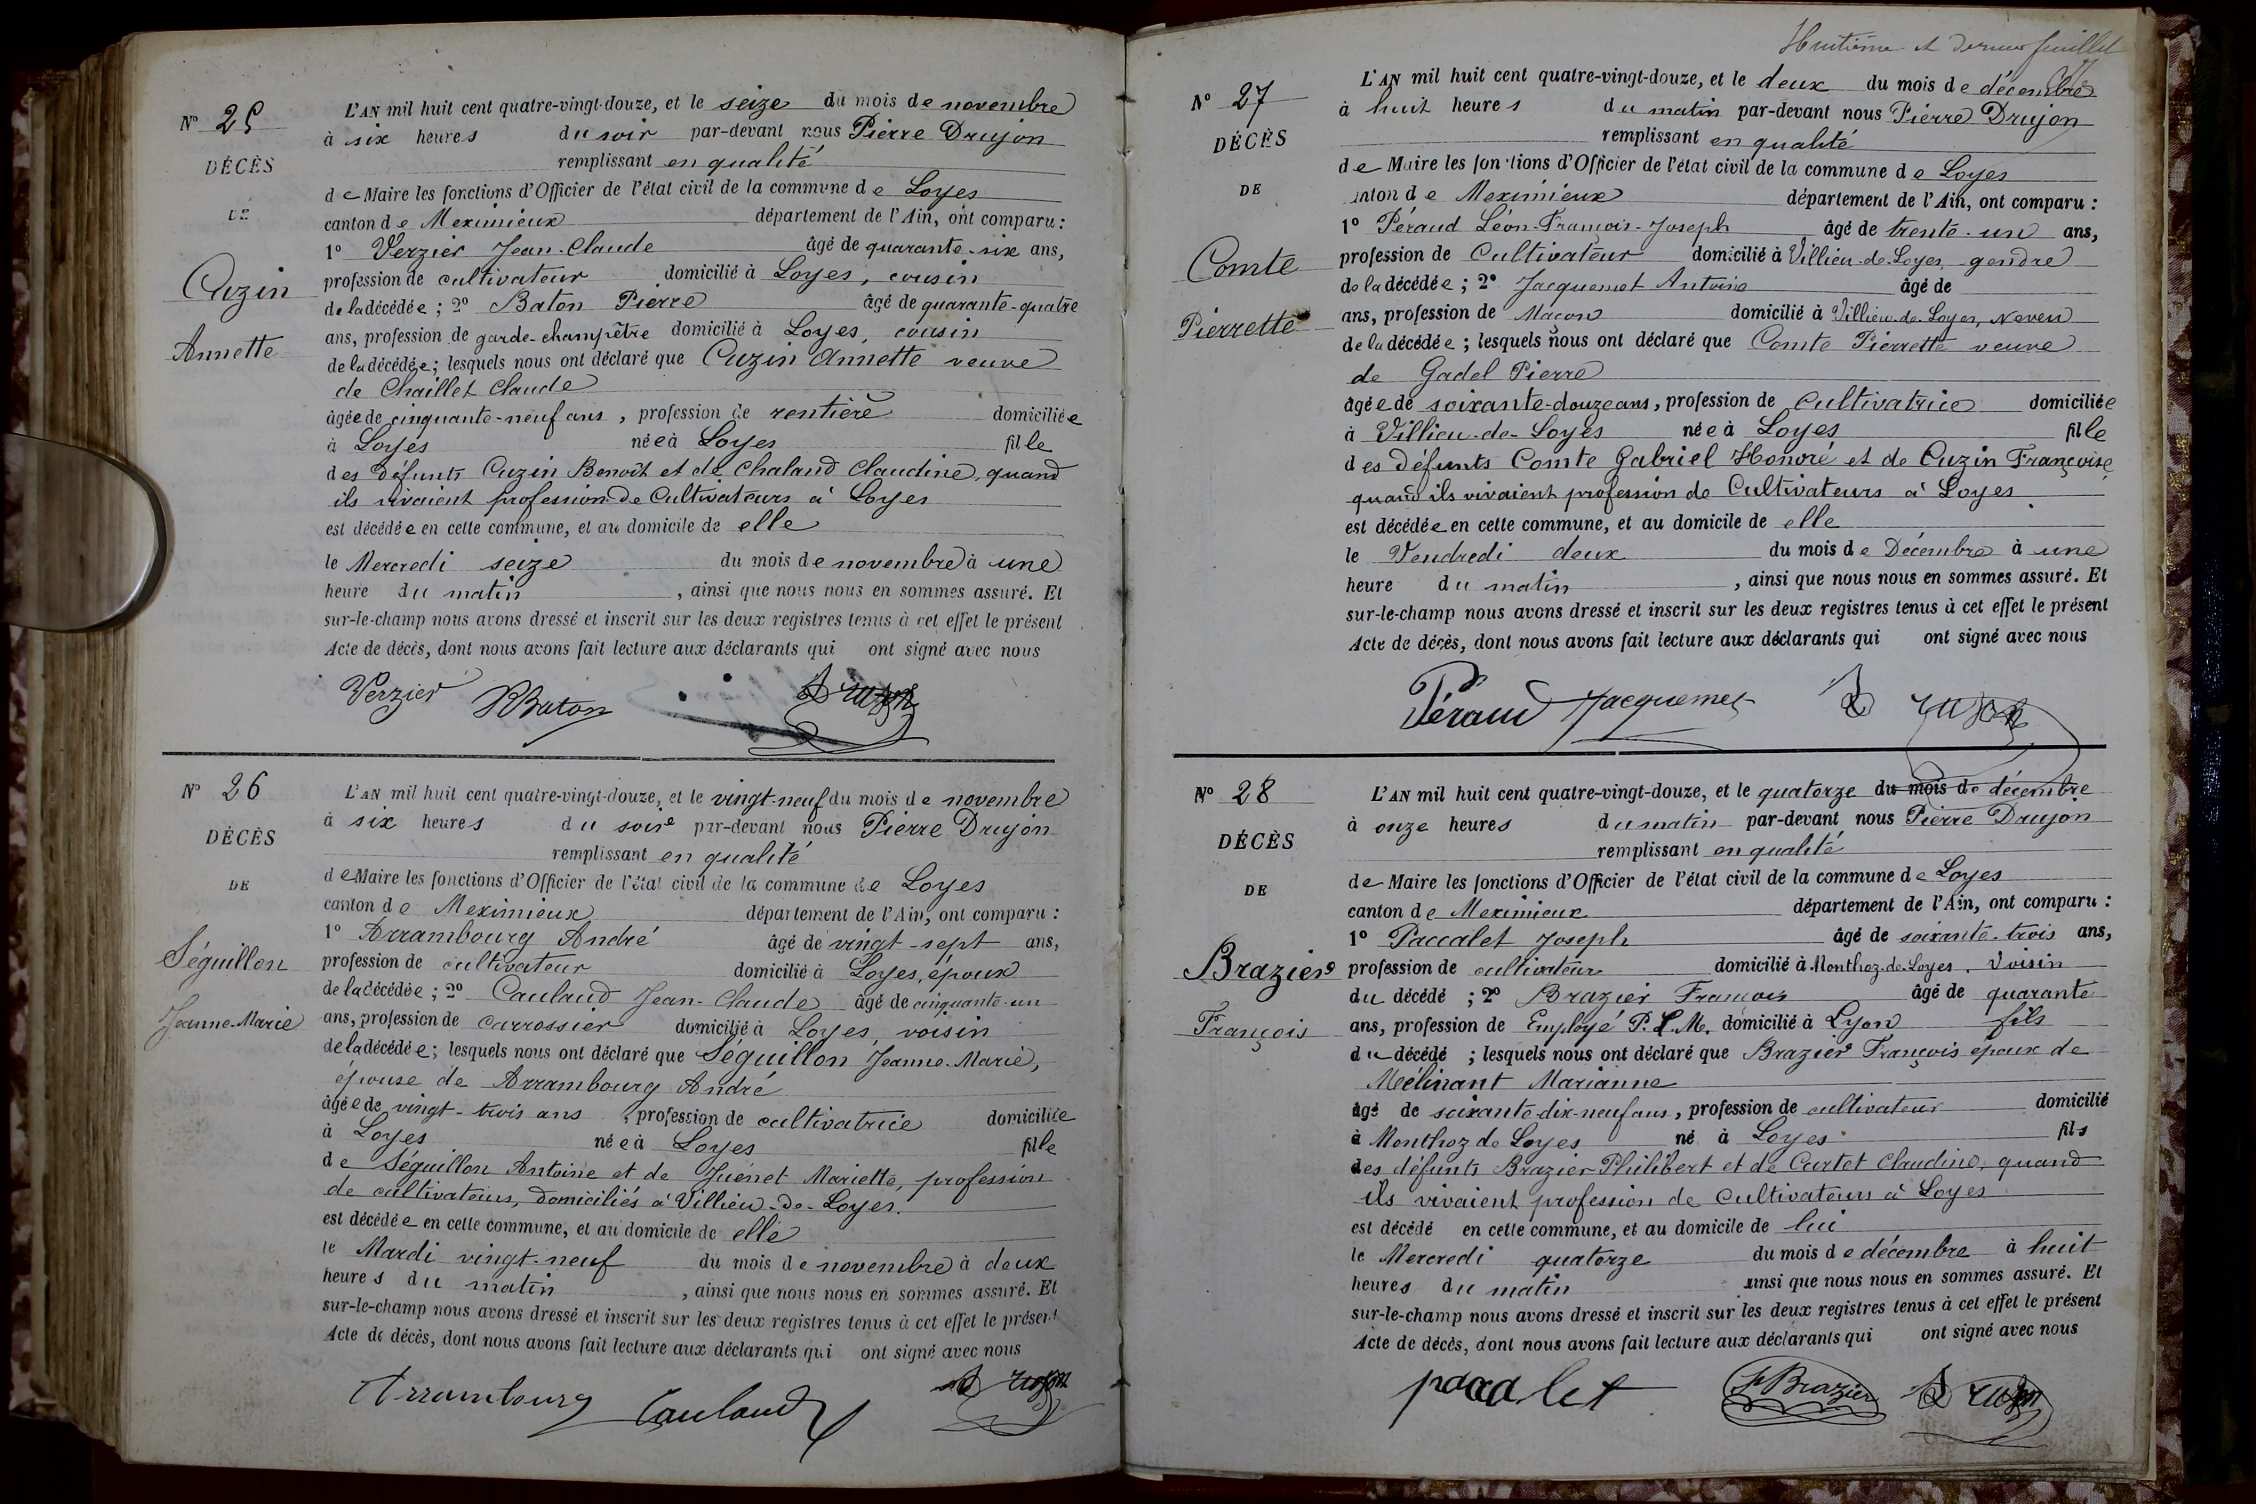 Nº 25
DÉCÈS
DE
Cuzin
Annette
L'AN mil huit cent quatre-vingt-douze, et le seize du mois de novembre
à six heures du soir par-devant nous Pierre Drujon
remplissant en qualité
de Maire les fonctions d'Officier de l'état civil de la commune de Loyes
canton de Meximieux département de l'Ain, ont comparu :
1º Verzier Jean-Claude âgé de quarante-six ans,
profession de cultivateur domicilié à Loyes, cousin
de la décédée ; 2º Baton Pierre âgé de quarante-quatre
ans, profession de garde-champêtre domicilié à Loyes, cousin
de la décédée ; lesquels nous ont déclaré que Cuzin Annette veuve
de Chaillet Claude
âgée de cinquante-neuf ans, profession de rentière domiciliée
à Loyes née à Loyes fille
des défunts Cuzin Benoît et de Chaland Claudine, quand
ils vivaient profession de Cultivateurs à Loyes
est décédée en cette commune, et au domicile de elle
le Mercredi seize du mois de novembre à une
heure du matin, ainsi que nous nous en sommes assuré. Et
sur-le-champ nous avons dressé et inscrit sur les deux registres tenus à cet effet le présent
Acte de décès, dont nous avons fait lecture aux déclarants qui ont signé avec nous
Verzier PBaton Drujon
Nº 26
DÉCÈS
DE
Séguillon
Jeanne-Marie
L'AN mil huit cent quatre-vingt-douze, et le vingt-neuf du mois de novembre
à six heures du soir par-devant nous Pierre Drujon
remplissant en qualité
de Maire les fonctions d'Officier de l'état civil de la commune de Loyes
canton de Meximieux département de l'Ain, ont comparu :
1º Arrambourg André âgé de vingt-sept ans,
profession de cultivateur domicilié à Loyes, époux
de la décédée ; 2º Caulaud Jean-Claude âgé de cinquante-un
ans, profession de carrossier domicilié à Loyes, voisin
de la décédée ; lesquels nous ont déclaré que Séguillon Jeanne-Marie,
épouse de Arrambourg André
âgée de vingt-trois ans, profession de cultivatrice domiciliée
à Loyes née à Loyes fille
de Séguillon Antoine et de Juénet Mariette, profession
de cultivateurs, domiciliés à Villieu-de-Loyes.
est décédée en cette commune, et au domicile de elle
le Mardi vingt-neuf du mois de novembre à deux
heures du matin, ainsi que nous nous en sommes assuré. Et
sur-le-champ nous avons dressé et inscrit sur les deux registres tenus à cet effet le présent
Acte de décès, dont nous avons fait lecture aux déclarants qui ont signé avec nous
Arrambourg Caulaud Drujon
Huitième et dernier feuillet
Nº 27
DÉCÈS
DE
Comte
Pierrette
L'AN mil huit cent quatre-vingt-douze, et le deux du mois de décembre
à huit heures du matin par-devant nous Pierre Drujon
remplissant en qualité
de Maire les fonctions d'Officier de l'état civil de la commune de Loyes
canton de Meximieux département de l'Ain, ont comparu :
1º Péraud Léon-François-Joseph âgé de trente-un ans,
profession de Cultivateur domicilié à Villieu-de-Loyes, gendre
de la décédée ; 2º Jacquemet Antoine âgé de
ans, profession de Maçon domicilié à Villieu-de-Loyes, Neveu
de la décédée ; lesquels nous ont déclaré que Comte Pierrette veuve
de Gadel Pierre
âgée de soixante-douze ans, profession de Cultivatrice domiciliée
à Villieu-de-Loyes née à Loyes fille
des défunts Comte Gabriel Honoré et de Cuzin Françoise
quand ils vivaient profession de Cultivateurs à Loyes
est décédée en cette commune, et au domicile de elle
le Vendredi deux du mois de Décembre à une
heure du matin, ainsi que nous nous en sommes assuré. Et
sur-le-champ nous avons dressé et inscrit sur les deux registres tenus à cet effet le présent
Acte de décès, dont nous avons fait lecture aux déclarants qui ont signé avec nous
Péraud Jacquemet Drujon
Nº 28
DÉCÈS
DE
Brazier
François
L'AN mil huit cent quatre-vingt-douze, et le quatorze du mois de décembre
à onze heures du matin par-devant nous Pierre Drujon
remplissant en qualité
de Maire les fonctions d'Officier de l'état civil de la commune de Loyes
canton de Meximieux département de l'Ain, ont comparu :
1º Paccalet Joseph âgé de soixante-trois ans,
profession de cultivateur domicilié à Monthoz-de-Loyes, Voisin
du décédé ; 2º Brazier François âgé de quarante
ans, profession de Employé P.L.M. domicilié à Lyon fils
du décédé ; lesquels nous ont déclaré que Brazier François époux de
Mélinant Marianne
âgé de soixante-dix-neuf ans, profession de cultivateur domicilié
à Monthoz de Loyes né à Loyes fils
des défunts Brazier Philibert et de Curtet Claudine, quand
ils vivaient profession de Cultivateurs à Loyes
est décédé en cette commune, et au domicile de lui
le Mercredi quatorze du mois de décembre à huit
heures du matin ainsi que nous nous en sommes assuré. Et
sur-le-champ nous avons dressé et inscrit sur les deux registres tenus à cet effet le présent
Acte de décès, dont nous avons fait lecture aux déclarants qui ont signé avec nous
paccalet Brazier Drujon